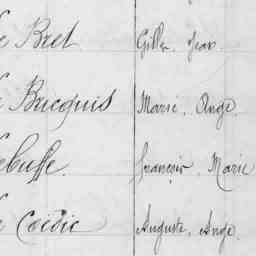 e Bret Gilles, Jean
e Bucquis Marie, Ange
ebusse. François, Marie
e Coëdic Auguste, Ange.